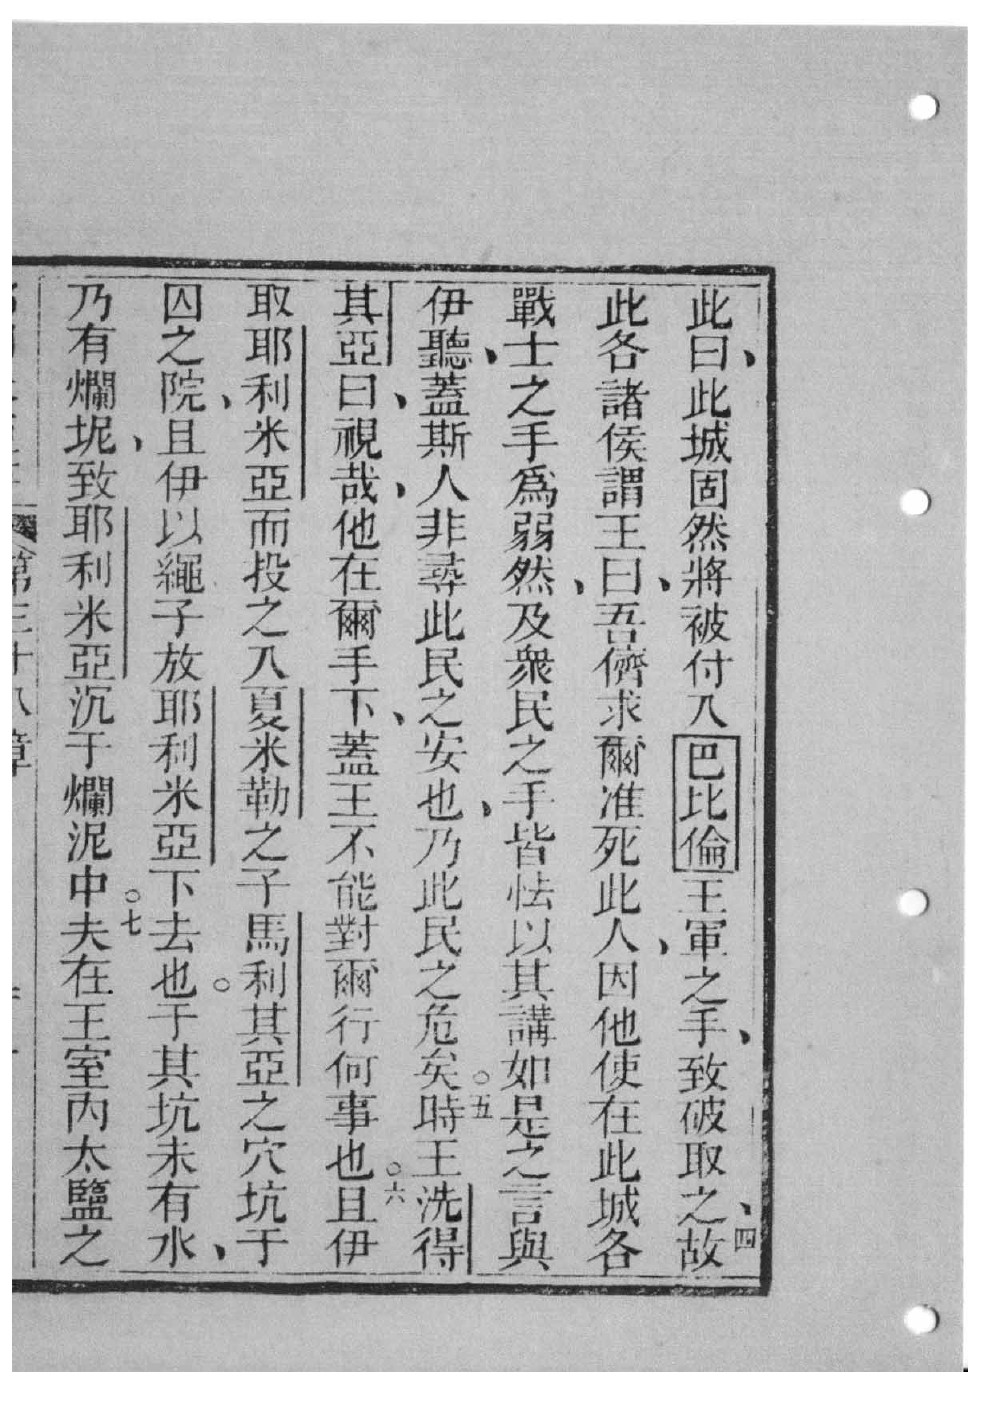 此曰、此城固然將被付入巴比倫王軍之手、致破取之、四故
此各諸侯謂王曰、吾儕求爾准死此人、因他使在此城各
戰士之手為弱然、及衆民之手皆怯以其講如是之言與
伊聽、蓋斯人非尋此民之安也、乃此民之危矣○五時王洗得
其亞曰、視哉、他在爾手下、蓋王不能對爾行何事也○六且伊
取耶利米亞而投之入夏米勒之子馬利其亞之穴坑于
囚之院、且伊以繩子放耶利米亞下去也○于其坑未有水、
乃有爛坭、致耶利米亞沉于爛泥中○七夫在王室內太鹽之
第三十八章